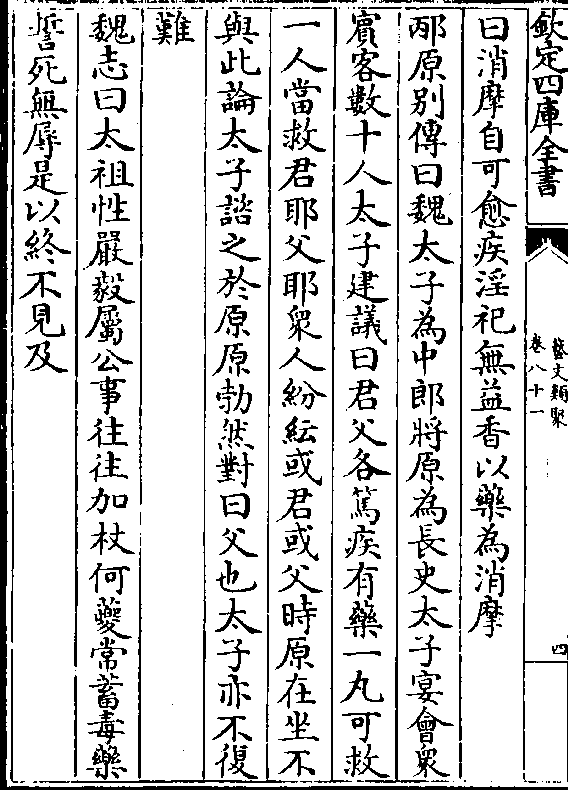 欽定四庫全書
藝文類聚
卷八十一
四
曰消摩自可愈疾淫祀無益香以藥為消摩
邴原别傳曰魏太子為中郎將原為長史太子宴會衆
賓客數十人太子建議曰君父各篤疾有藥一丸可救
一人當救君耶父耶衆人紛紜或君或父時原在坐不
與此論太子諮之於原原勃然對曰父也太子亦不復
難
魏志曰太祖性嚴毅屬公事往往加杖何夔常蓄毒藥
誓死無辱是以終不見及